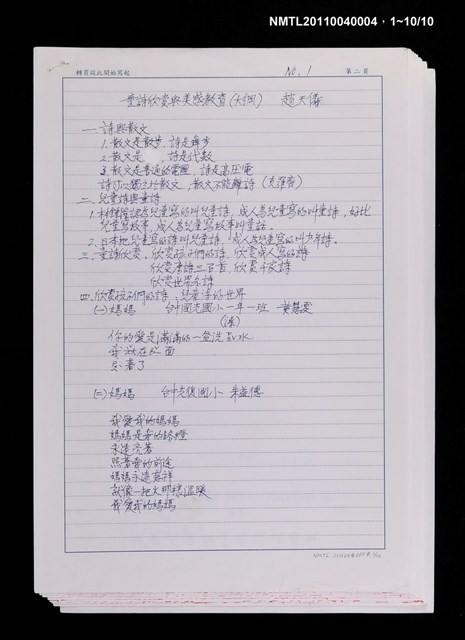 NMTL20110040004，1~10/10
轉頁從此開始寫起
No. 1
第二頁
童詩欣賞與美感教育(大綱) 趙天儀
一. 詩與散文
1. 散文是散步，詩是舞步
2. 散文是 ，詩是代數
3. 散文是普通的電壓，詩是高壓電
詩可以獨立於散文，散文不能離詩
二. 兒童詩與童詩
1. 林鍾隆認為兒童寫的叫兒童詩，成人為兒童寫的叫童詩，好比
兒童寫故事，成人為兒童寫故事叫童話。
2. 日本把兒童寫的詩叫兒童詩，成人為兒童寫的叫少年詩。
三. 童詩欣賞，欣賞孩子們的詩，欣賞成人寫的詩
欣賞唐詩三百首，欣賞千家詩
欣賞世界名詩
四. 欣賞孩子們的詩，兒童詩的世界
(一) 媽媽 台中光復國小一年一班 黃慧雯
你的愛是滿滿的一盆洗澡水
我泡在裡面
忘著了
(二) 媽媽 台中光復國小 朱益傳
我愛我的媽媽
媽媽是我的路燈
永遠亮著
照著我的前途
媽媽永遠慈祥
就像一把火那樣溫暖
我愛我的媽媽